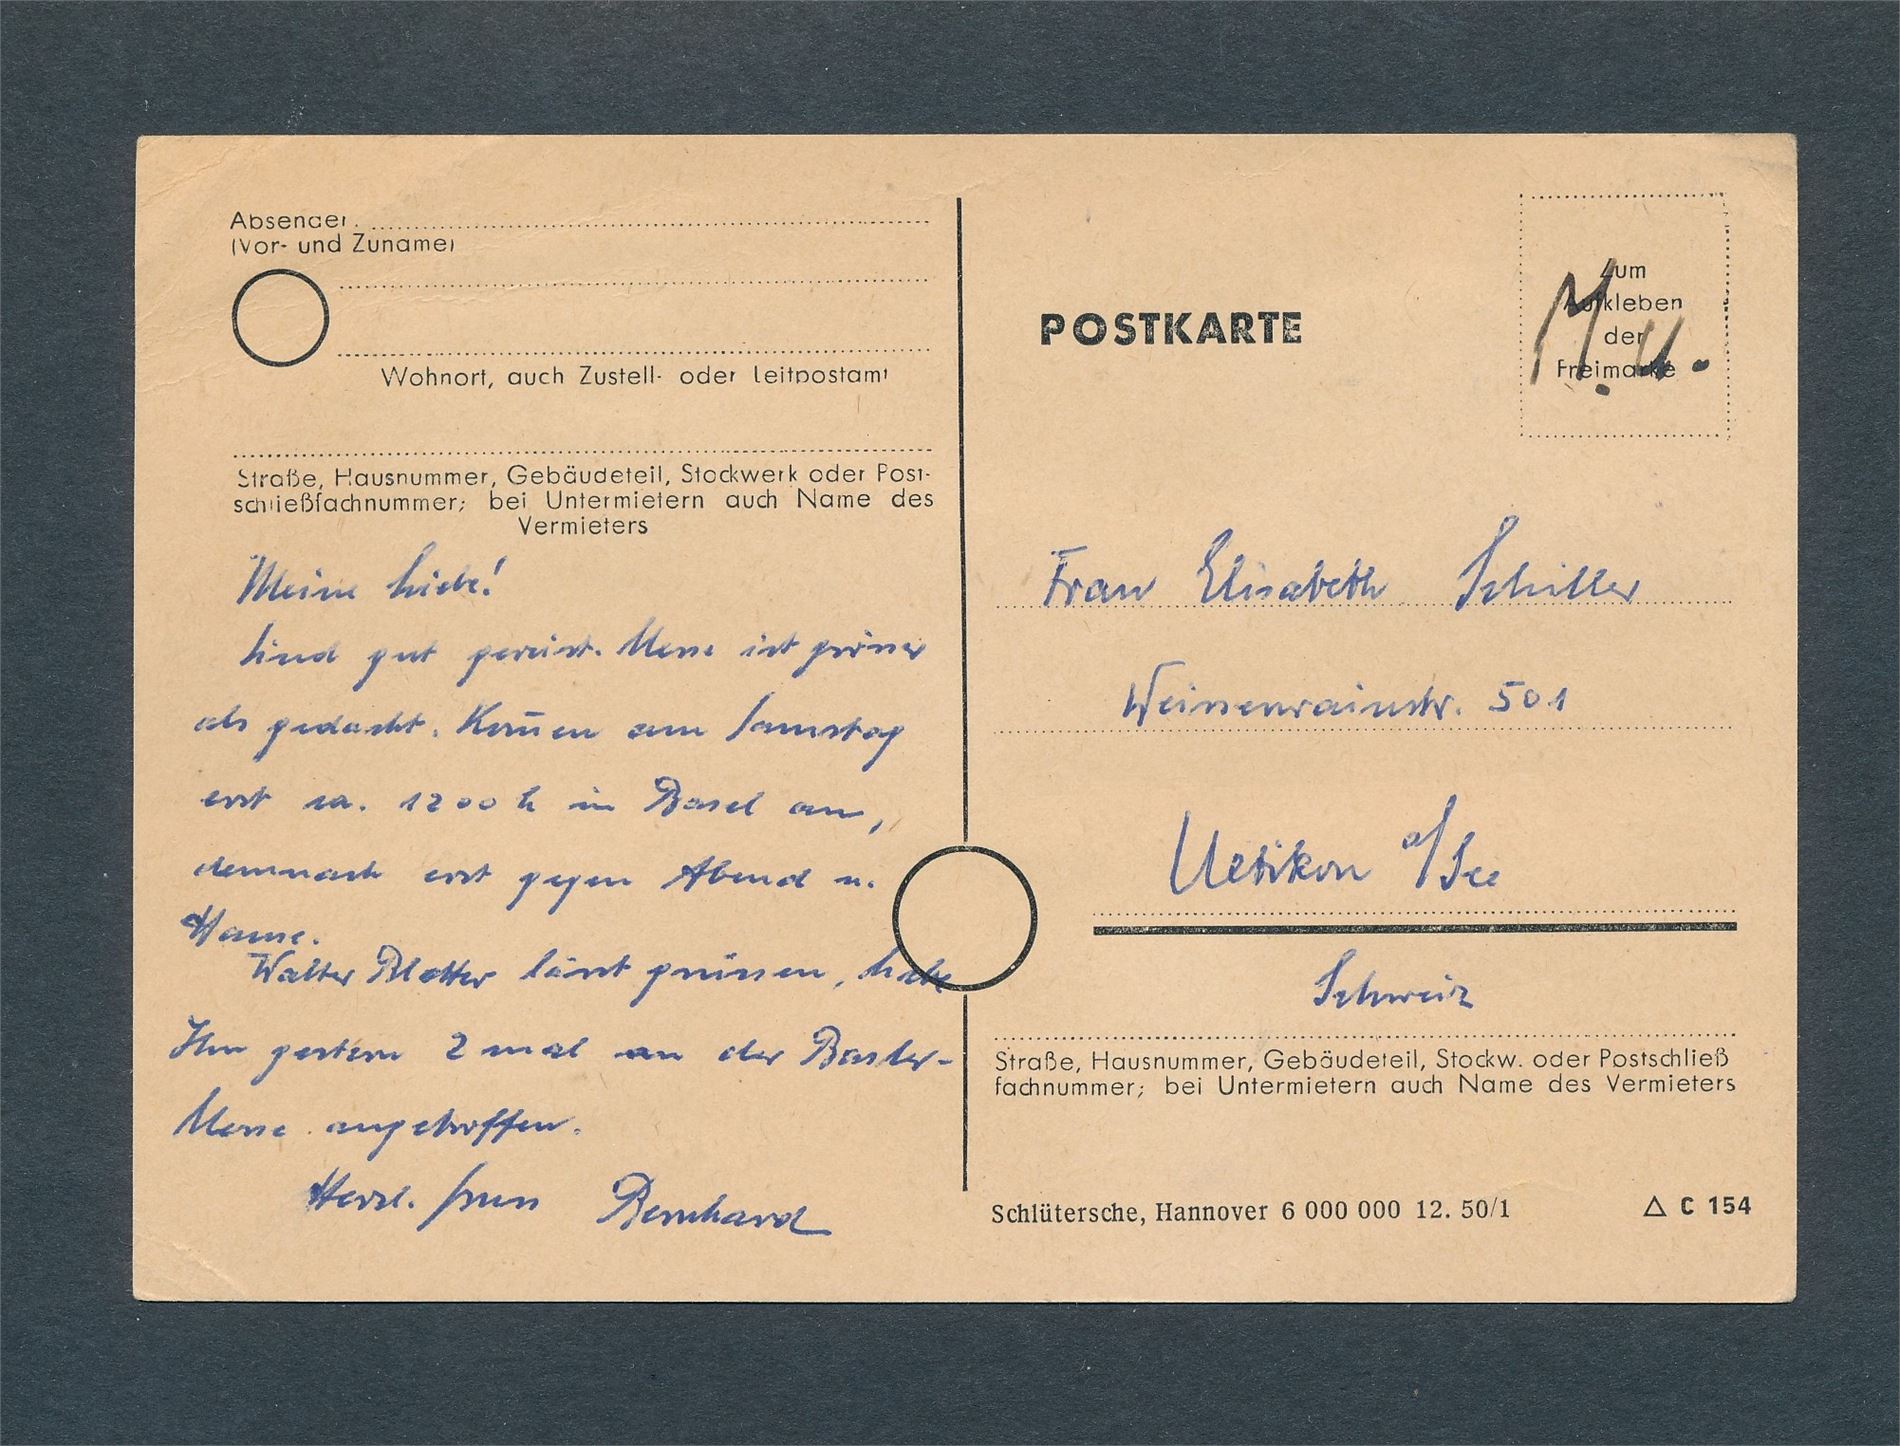 Absender:
(Vor- und Zuname)
Wohnort, auch Zustell- oder Leitpostamt
Straße, Hausnummer, Gebäudeteil, Stockwerk oder Post-
schließfachnummer; bei Untermietern auch Name des
Vermieters
Meine Liebe!
Sind gut gereist. Messe ist grösser
als gedacht. Kom̄en am Samstag
erst ca. 1200 h in Basel an,
demnach erst gegen Abend n.
Hause.
Walter Blatter lässt grüssen, habe
Ihn gestern 2 mal an der Basler-
Messe angetroffen.
Herzl. Bernhard
POSTKARTE
Zum
Aufkleben
der
Freimarke
Frau Elisabeth Schiller
Weissenrainstr. 501
Uetikon a/See
Schweiz
Straße, Hausnummer, Gebäudeteil, Stockw. oder Postschließ
fachnummer; bei Untermietern auch Name des Vermieters
Schlütersche, Hannover 6 000 000 12. 50/1
△ C 154